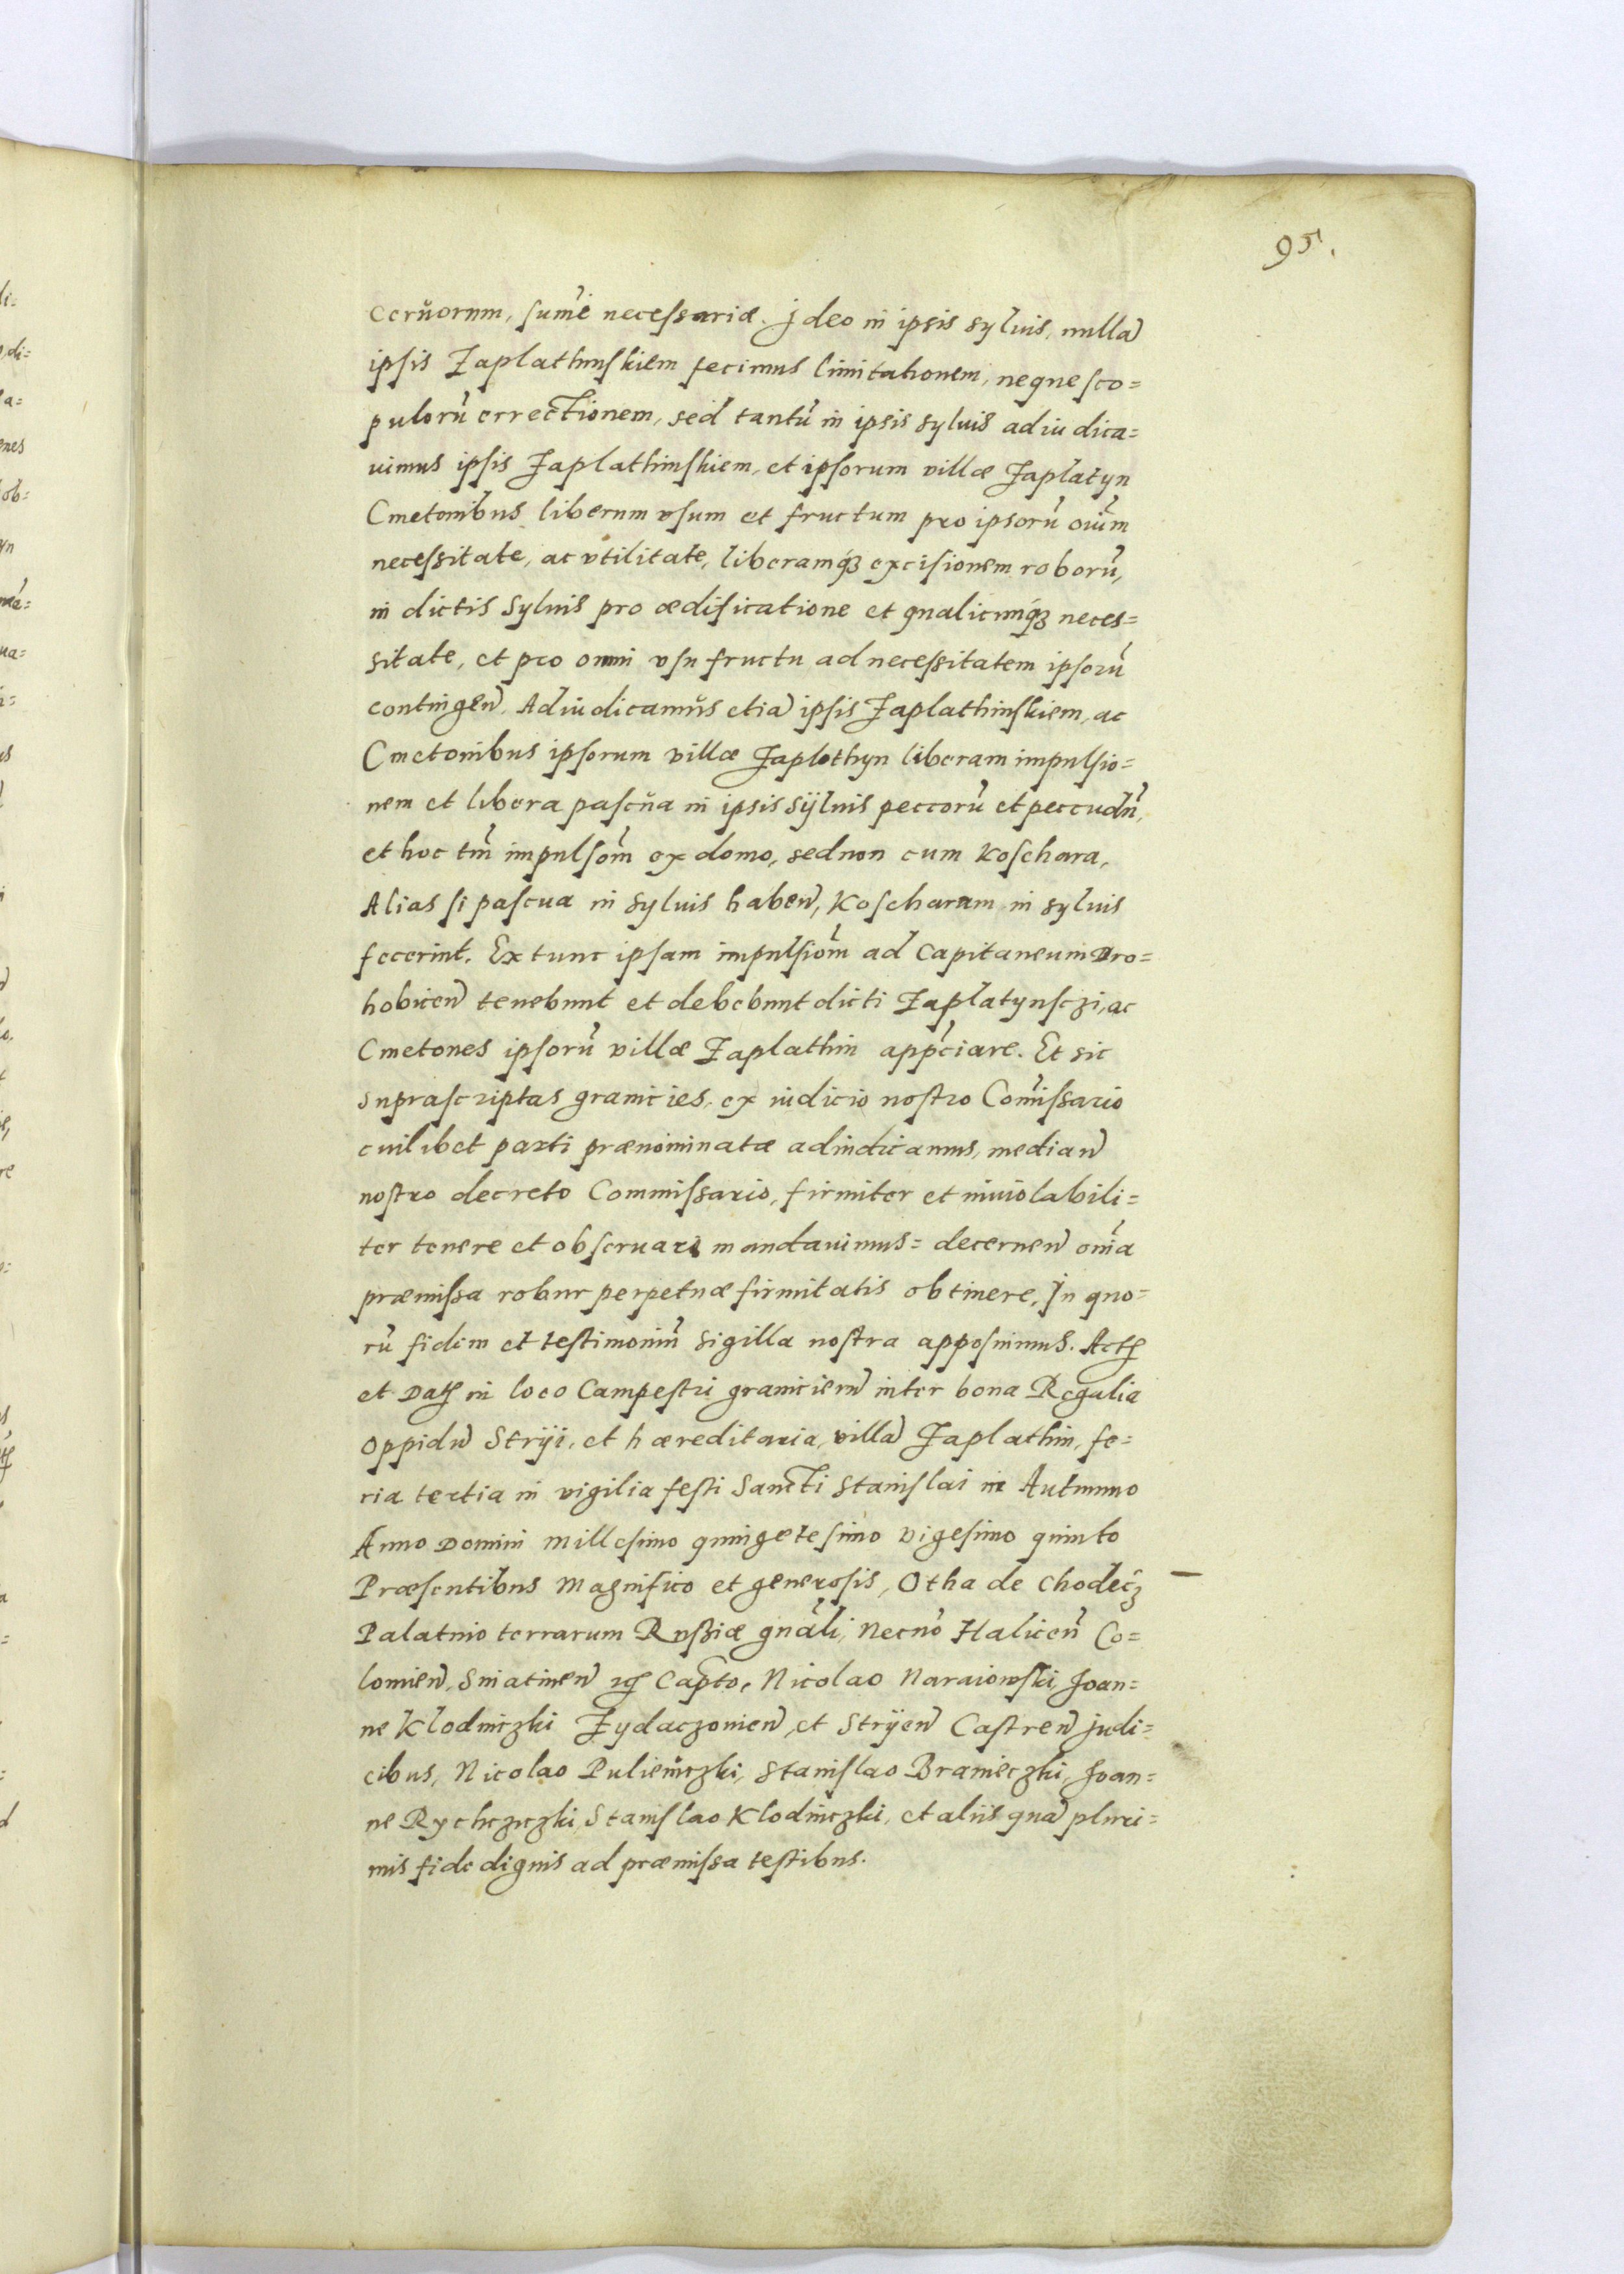 95.
ceruorum, sum̃e necessariæ. Ideo in ipsis syluis, nullã
ipsis Zaplathinskiem fecimus limitationem, neque sco=
pulorũ errectionem, sed tantũ in ipsis syluis adiudica=
uimus ipsis Zaplathinskiem, et ipsorum villæ Zaplatyn
Cmetonibus liberum vsum et fructum pro ipsorũ oiũm
necessitate, ac vtilitate, liberamq́ꝫ excisionem roborũ,
in dictis syluis pro ædificatione et qualicunq́ꝫ neces=
sitate, et pro omni vsu fructu ad necessitatem ipsorũ
contingeñ. Adiudicamus etiã ipsis Zaplathinskiem, ac
Cmetonibus ipsorum villæ Zaplothyn liberam impulsio=
nem et libera pascua in ipsis syluis peccorũ et peccudũ,
et hoc tm̃ impulsom̃ ex domo, sed non cum Koschara,
Alias si pascua in syluis habeñ, Koscharam in syluis
fecerint. Ex tunc ipsam impulsiom̃ ad Capitaneum Dro=
hobiceñ tenebunt et debebunt dicti Zaplatynsczi, ac
Cmetones ipsorũ villæ Zaplathin app̃ciare. Et sic
suprascriptas granicies, ex iudicio nostro Com̃issario
cuilibet parti prænominatæ adiudicamus, mediañ
nostro decreto Commissario, firmiter et inuiolabili=
ter tenere et obseruari mandauimus= decerneñ om̃ia
præmissa robur perpetuæ firmitatis obtinere. In quo=
rũ fidem et testimoniũ sigilla nostra apposuimus. Actꝭ
et Datꝭ in loco Campestri granicierũ inter bona Regalia
oppidũ Stryi, et hæreditaria, villã Zaplathin, fe=
ria tertia in vigilia festi Sancti Stanislai in Autumno
Anno Domini millesimo quingẽtesimo vigesimo quinto
Præsentibus Magnifico et generosis, Otha de Chodecꝫ
Palatino terrarum Russiæ gnãli, Necnõ Haliceñ Co=
lomieñ, Sniatineñ ꝛꝭ Capto, Nicolao Naraiowski, Joan=
ne Klodniczki Zydaczouieñ, et Stryeñ Castreñ Judi=
cibus, Nicolao Pulieniczki, Stanislao Branieczki, Joan=
ne Rychcziczki, Stanislao Klodniczki, et aliis quã pluri=
mis fide dignis ad præmissa testibus.